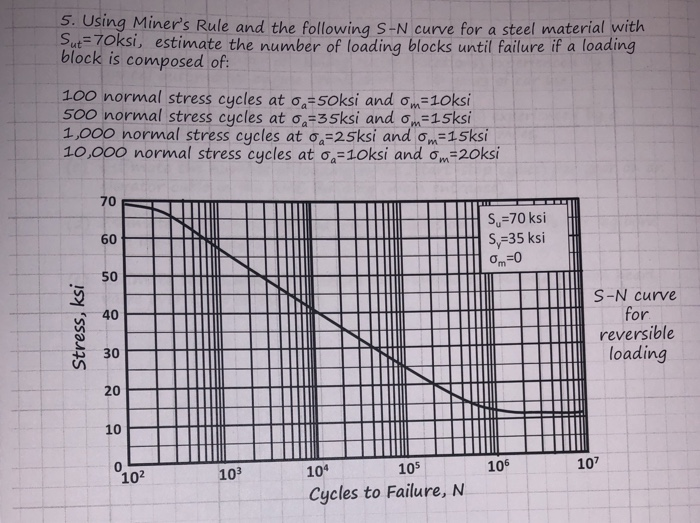 5. Using Miner's Rule and the following S-N curve for a steel material with
Sut=70ksi, estimate the number of loading blocks until failure if a loading
block is composed of:
100 normal stress cycles at σa=50ksi and σm=10ksi
500 normal stress cycles at σa=35ksi and σm=15ksi
1,000 normal stress cycles at σa=25ksi and σm=15ksi
10,000 normal stress cycles at σa=10ksi and σm=20ksi
Stress, ksi
70
60
50
40
30
20
10
0
Su=70 ksi
Sy=35 ksi
σm=0
S-N curve
for
reversible
loading
10² 10³ 10⁴ 10⁵ 10⁶ 10⁷
Cycles to Failure, N